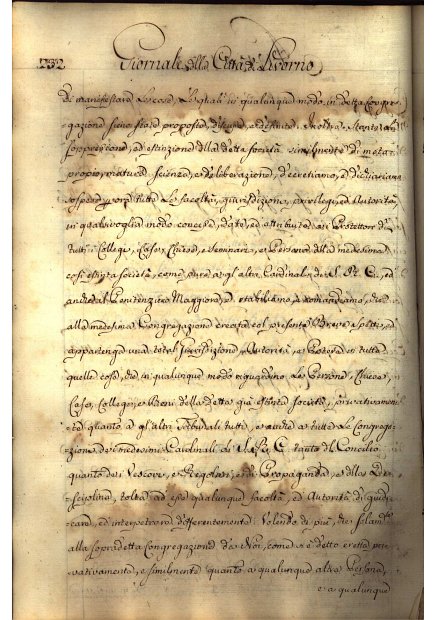 232
Giornale della Città di Livorno
di manifestare le cose, le quali in qualunque modo in detta Congre-
gazione sieno state proposte, discusse, e definite. Inoltre Stante la
soppressione, ed estinzione della detta Società similmente di moto
proprio, matura scienza, e deliberazione, decretiamo, e dichiariamo
sospese, e tutte le facoltà, giurisdizioni, privilegj, ed Autorità
in qualsivoglia modo concesse, date, ed attribuite ai Protettori di
tutti i Collegj, Case, Chiese, e Seminarj, e Persone della medesima
così estinta società, come pure a gl'altri Cardinali di S. R. C., ed
anche al Penitenziere Maggiore, e stabiliamo, e comandiamo, che
alla medesima Congregazione creata col presente Breve spetti, ed
appartenga una total Giurisdizione, Autorità, e Potere in tutte
quelle cose, che in qualunque modo riguardino le Persone, Chiese,
Case, Collegj, e Beni della detta già estinta società, privativamen-
te quanto a gl'altri Tribunali tutti, e anche a tutte le Congrega-
zione dei medesimi Cardinali di S. R. C. tanto del Concilio
quanto dei Vescovi, e Regolari, e di Propaganda, e della Di-
sciplina, tolta ad esse qualunque facoltà, ed Autorità di giudi-
care, ed interpretare differentemente. Volendo di più, che solamte
alla sopradetta Congregazione da Noi, come s'è detto eretta pri-
vativamente, e similmente quanto a qualunque altra Persona,
e a qualunque